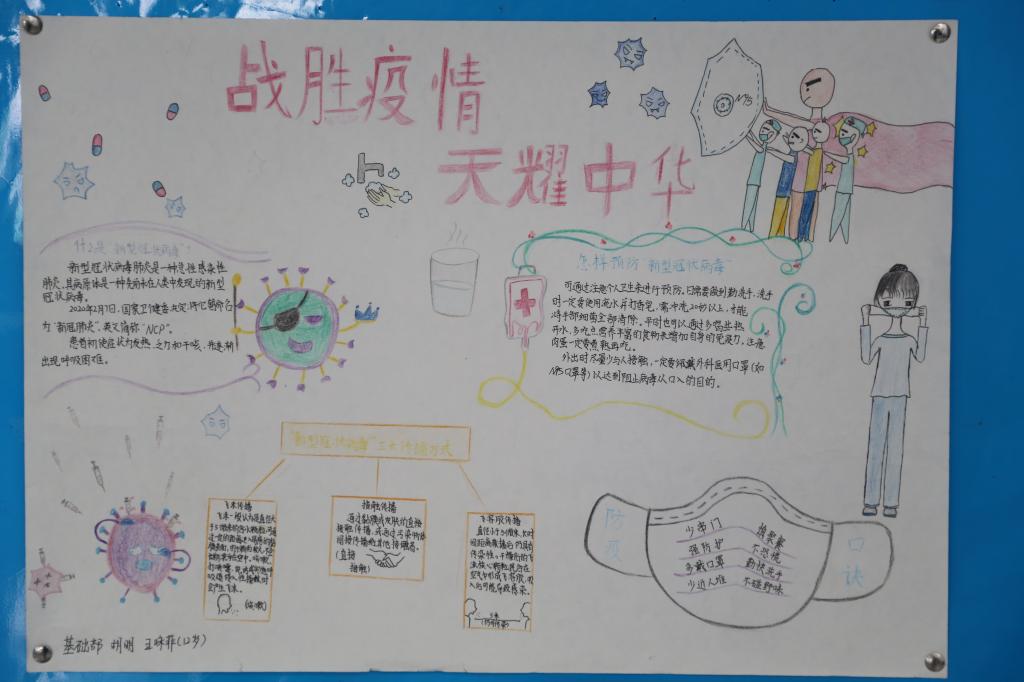 战胜疫情
天耀中华
N95
什么是"新型冠状病毒"?
新型冠状病毒肺炎是一种急性感染性
肺炎,其病原体是一种先前未在人类中发现的新型
冠状病毒。
2020年2月7日,国家卫健委决定将它暂命名
为"新冠肺炎",英文简称"NCP"。
患者初使症状为发热、乏力和干咳,并逐渐
出现呼吸困难。
怎样预防"新型冠状病毒"
可通过注意个人卫生来进行预防。日常要做到勤洗手,洗手
时一定要使用流水并打香皂,需冲洗20秒以上,才能
将手部细菌全部清除。平时也可以通过多喝些热
开水,多吃点营养丰富的食物来增加自身的免疫力,注意
肉蛋一定要煮熟再吃。
外出时尽量少与人接触,一定要佩戴外科医用口罩(如
N95口罩等)以达到阻止病毒从口入的目的。
"新型冠状病毒"三大传播方式
飞沫传播
(咳嗽)
接触传播
通过黏膜或皮肤的直接
接触传播,或通过污染物的
间接传播的其他接触者。
(直接
接触)
飞沫一般认为是直径大
气溶胶传播
防疫
少串门
强防护
多戴口罩
少进人堆
换聚餐
不恐慌
勤快洗手
不碰野味
口诀
基础部
(12岁)